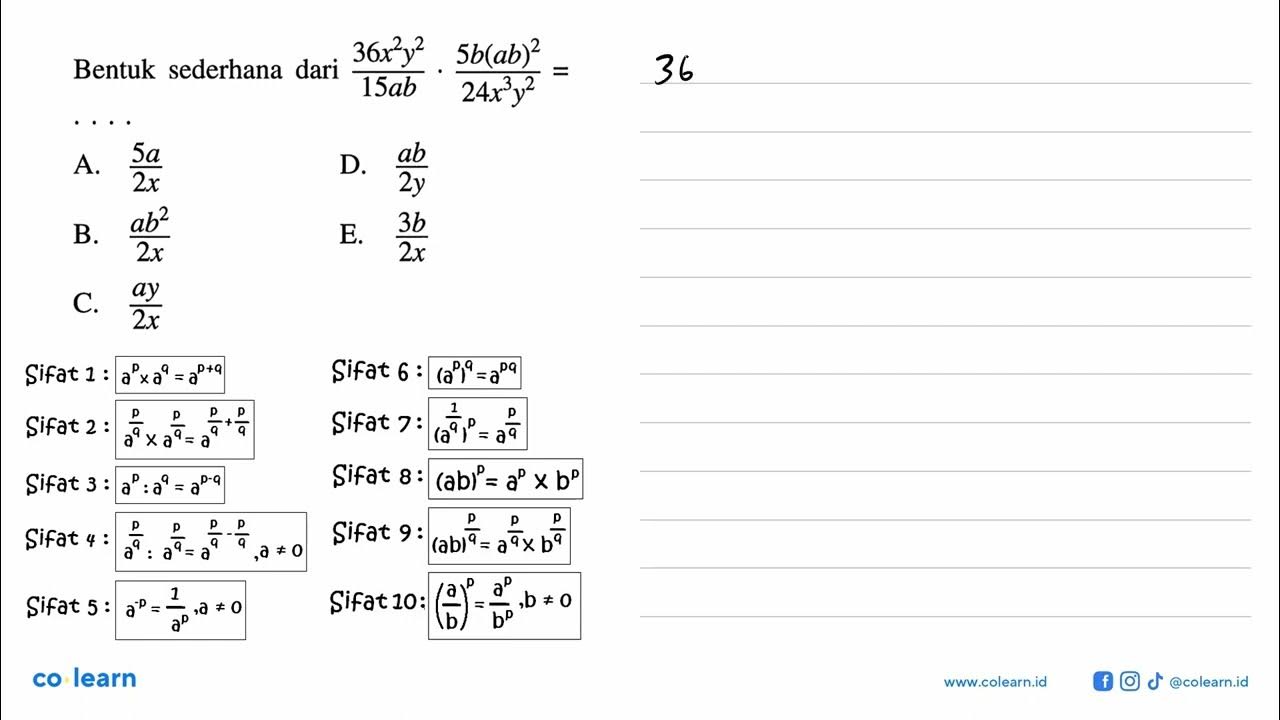 Bentuk sederhana dari 36x²y²/15ab · 5b(ab)²/24x³y² =
. . . .
36
A. 5a/2x
B. ab²/2x
C. ay/2x
D. ab/2y
E. 3b/2x
Sifat 1 : a^p × a^q = a^(p+q)
Sifat 2 : a^(p/q) × a^(p/q) = a^(p/q + p/q)
Sifat 3 : a^p : a^q = a^(p-q)
Sifat 4 : a^(p/q) : a^(p/q) = a^(p/q - p/q) , a ≠ 0
Sifat 5 : a^(-p) = 1/a^p , a ≠ 0
Sifat 6 : (a^p)^q = a^(pq)
Sifat 7 : (a^(1/q))^p = a^(p/q)
Sifat 8 : (ab)^p = a^p × b^p
Sifat 9 : (ab)^(p/q) = a^(p/q) × b^(p/q)
Sifat 10 : (a/b)^p = a^p/b^p , b ≠ 0
co·learn
www.colearn.id
@colearn.id